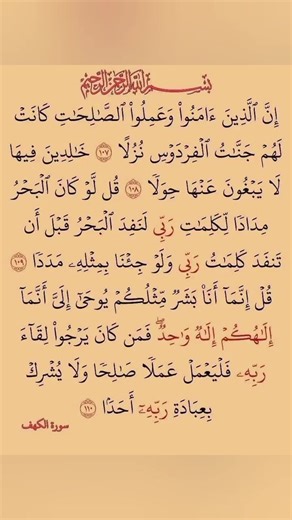 بسم الله الرحمن الرحيم
إِنَّ ٱلَّذِينَ ءَامَنُوا۟ وَعَمِلُوا۟ ٱلصَّٰلِحَٰتِ كَانَتْ
لَهُمْ جَنَّٰتُ ٱلْفِرْدَوْسِ نُزُلًا ١٠٧ خَٰلِدِينَ فِيهَا
لَا يَبْغُونَ عَنْهَا حِوَلًا ١٠٨ قُل لَّوْ كَانَ ٱلْبَحْرُ
مِدَادًا لِّكَلِمَٰتِ رَبِّى لَنَفِدَ ٱلْبَحْرُ قَبْلَ أَن
تَنفَدَ كَلِمَٰتُ رَبِّى وَلَوْ جِئْنَا بِمِثْلِهِۦ مَدَدًا ١٠٩
قُلْ إِنَّمَآ أَنَا۠ بَشَرٌ مِّثْلُكُمْ يُوحَىٰٓ إِلَىَّ أَنَّمَآ
إِلَٰهُكُمْ إِلَٰهٌ وَٰحِدٌ ۖ فَمَن كَانَ يَرْجُوا۟ لِقَآءَ
رَبِّهِۦ فَلْيَعْمَلْ عَمَلًا صَٰلِحًا وَلَا يُشْرِكْ
بِعِبَادَةِ رَبِّهِۦٓ أَحَدًۢا ١١٠
سورة الكهف